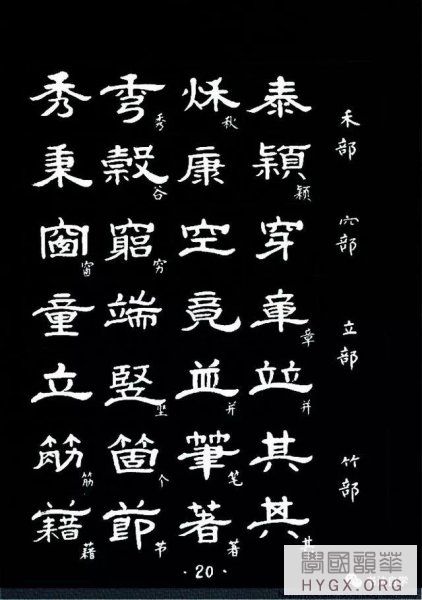 禾部 穴部 立部 竹部
泰 穎 颖 穿 章 章 竝 并 其 其
秌 秋 康 空 竟 並 并 筆 笔 著 著
秀 秀 穀 谷 窮 穷 端 竪 箇 个 節 节
秀 秉 窗 窗 童 立 筋 筋 藉 藉
·20·
學國韻華
HYGX.ORG